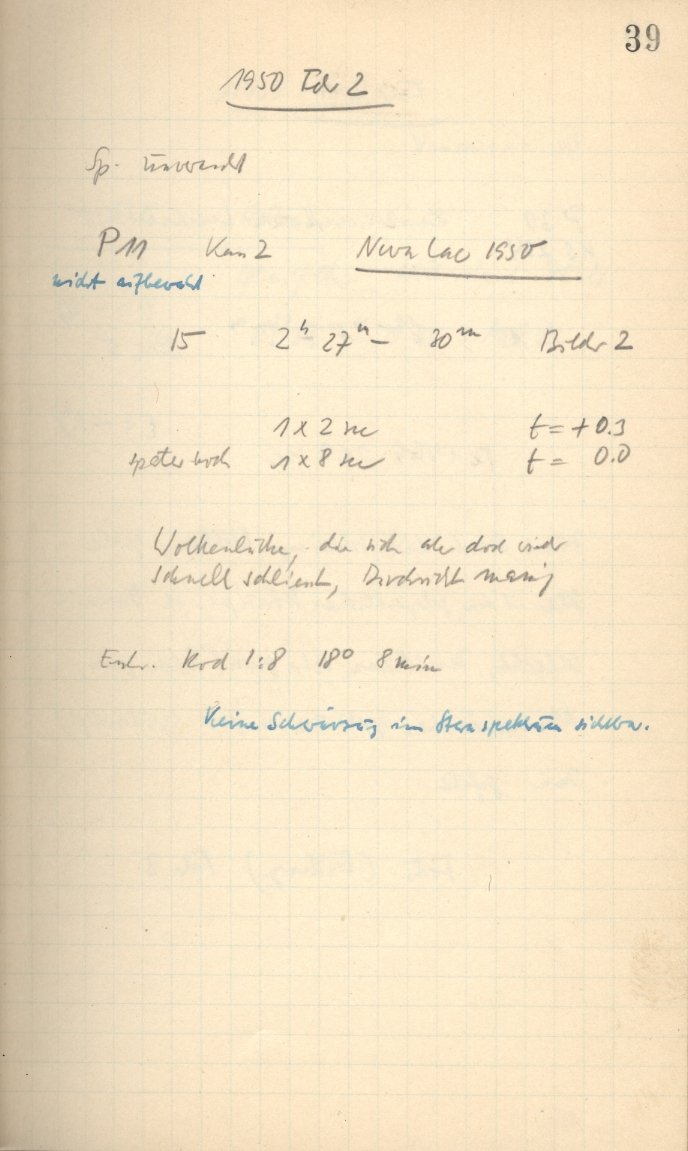 39
1950 Febr 2
Sp. unverändert
P 11 Kam 2 Nova Lac 1950
nicht aufbewahrt
15 2h 27m – 30m Bilder 2
1 x 2 sec t = + 0.3
später noch 1 x 8 sec t = 0.0
Wolkenlücke, die sich aber doch wieder
schnell schliesst, Durchsicht mässig
Entw. Rod 1:8 18° 8 min
Keine Schwärzung im Sternspektrum sichtbar.